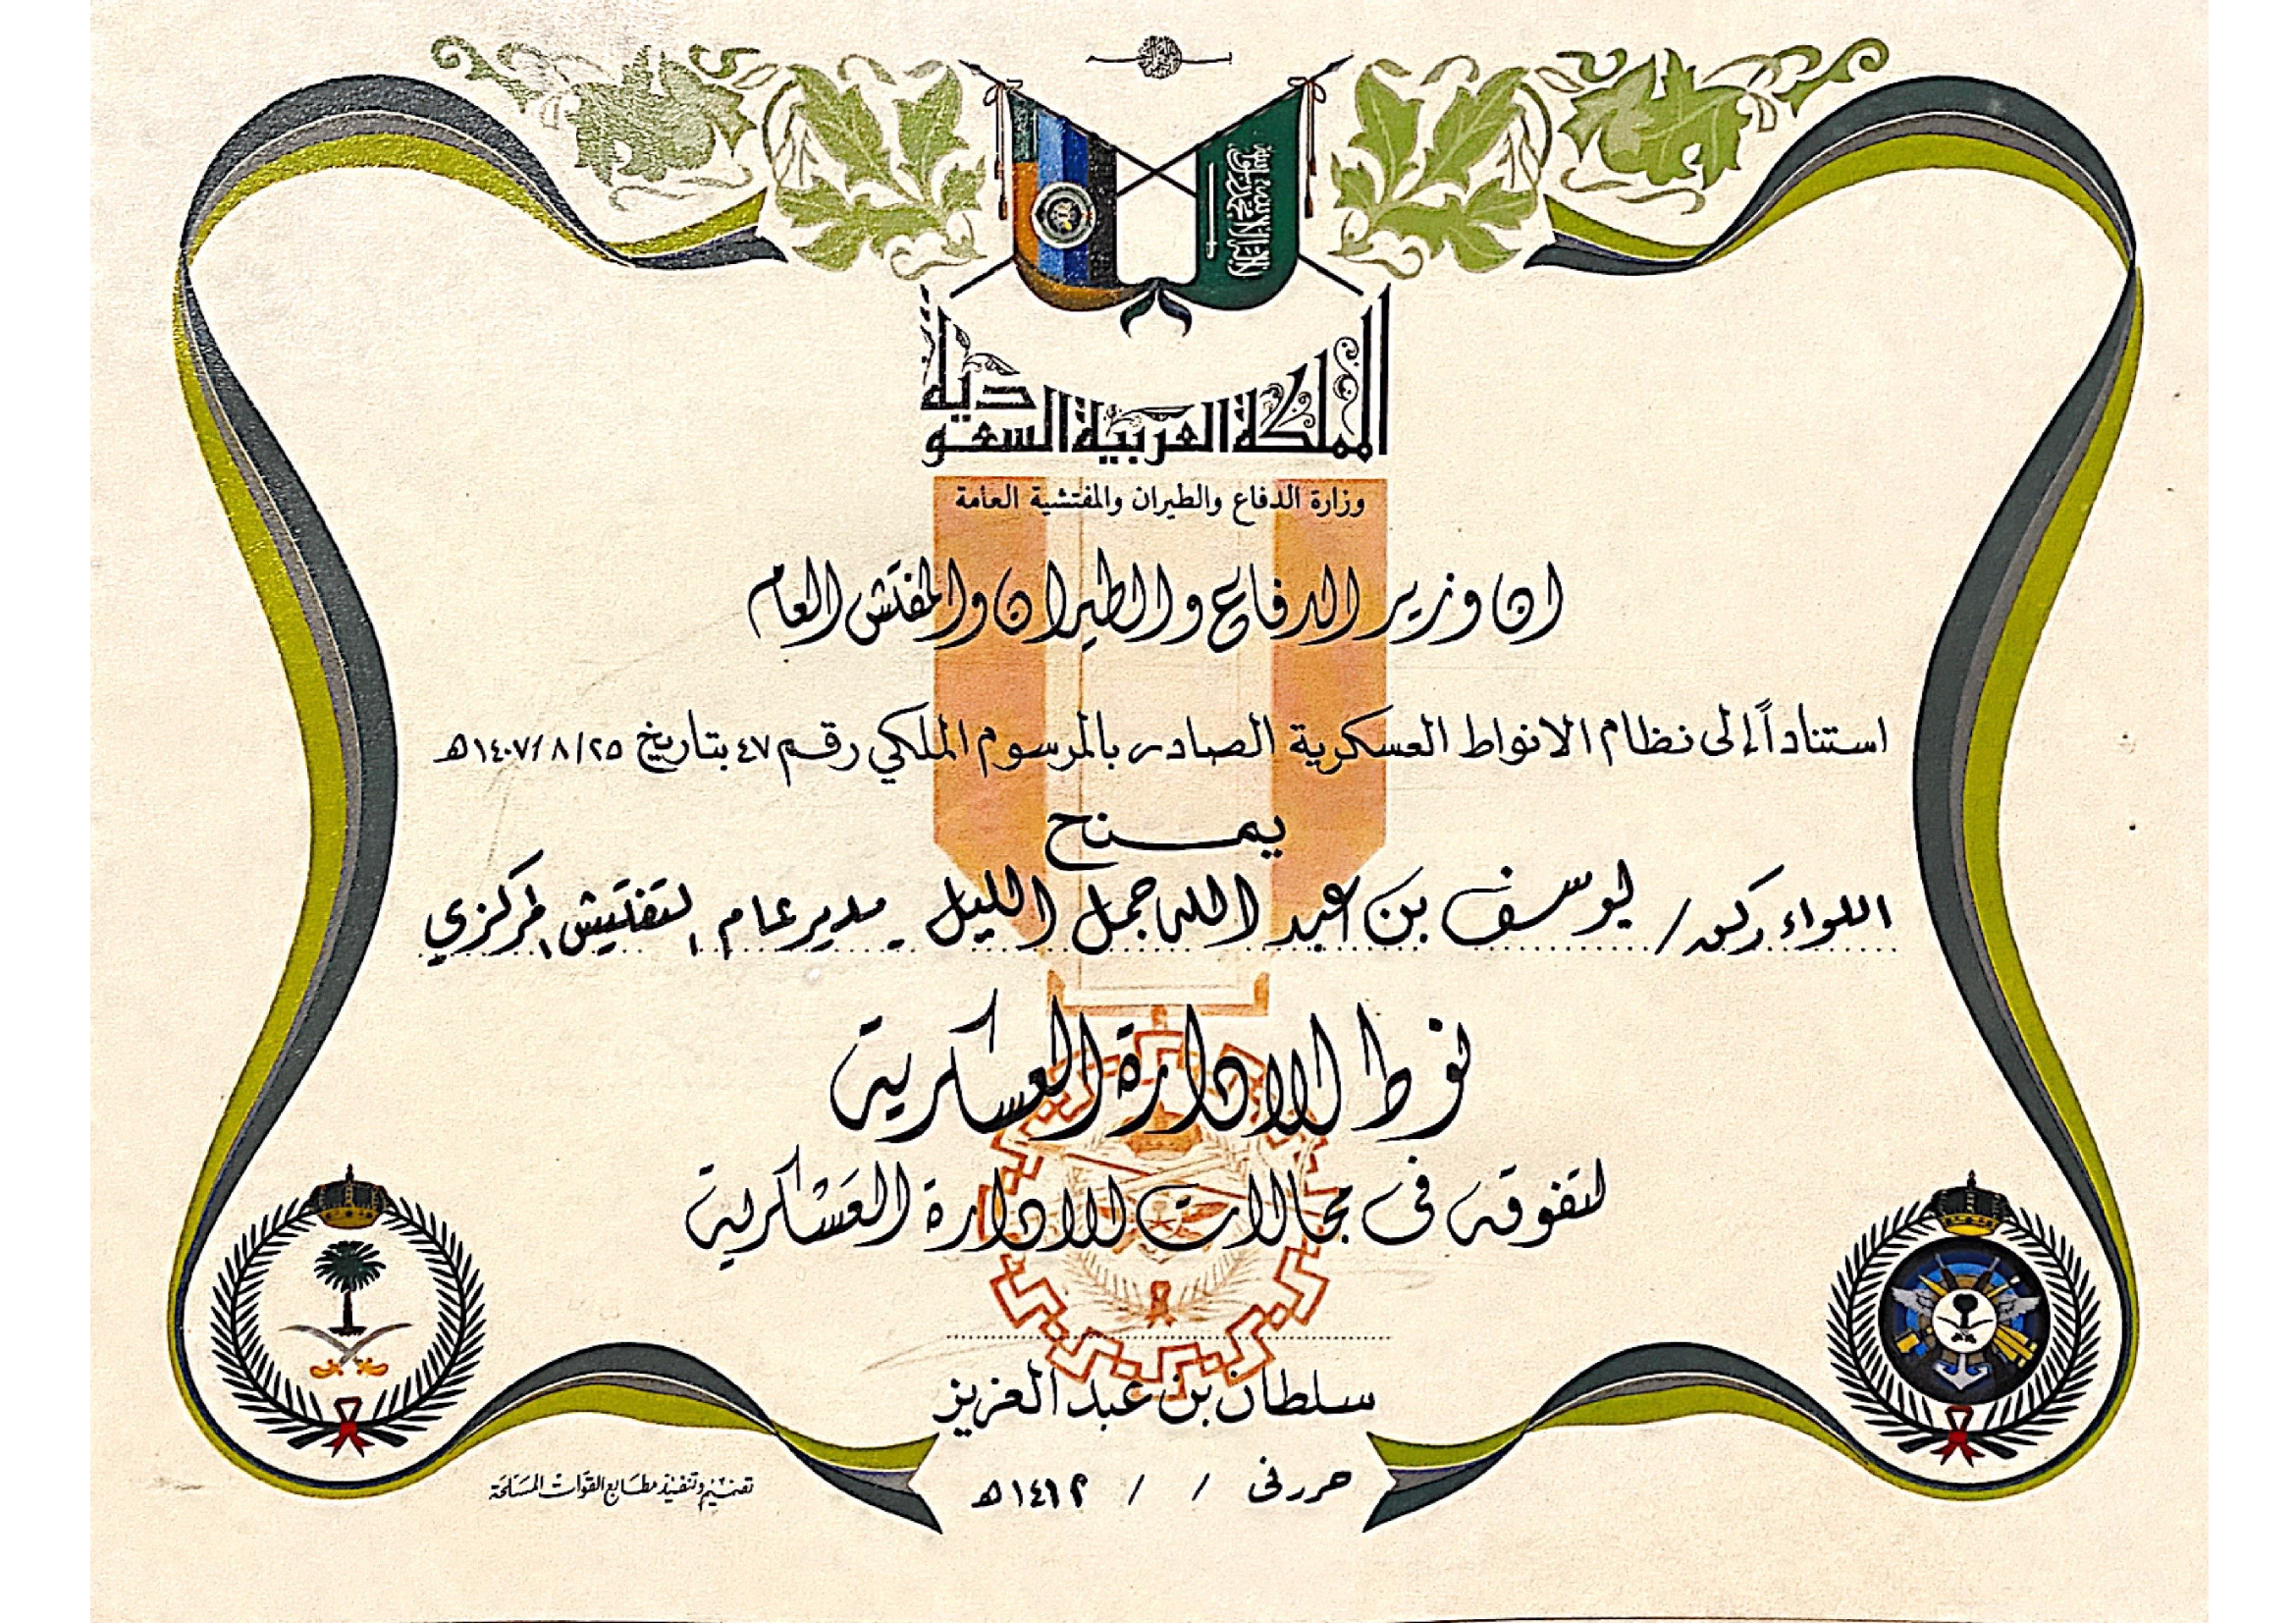 لا إله إلا الله محمد رسول الله
المملكة العربية السعودية
وزارة الدفاع والطيران والمفتشية العامة
ان وزير الدفاع والطيران والمفتش العام
استناداً إلى نظام الانواط العسكرية الصادر بالمرسوم الملكي رقم ٤٧ بتاريخ ١٤٠٧/٨/٢٥هـ
يمنح
اللواء ركن / يوسف بن عبد الله جمل الليل مدير عام التفتيش المركزي
نوط الادارة العسكرية
لتفوقه في مجالات الادارة العسكرية
سلطان بن عبد العزيز
حرر في / / ١٤١٢هـ
تصميم وتنفيذ مطابع القوات المسلحة